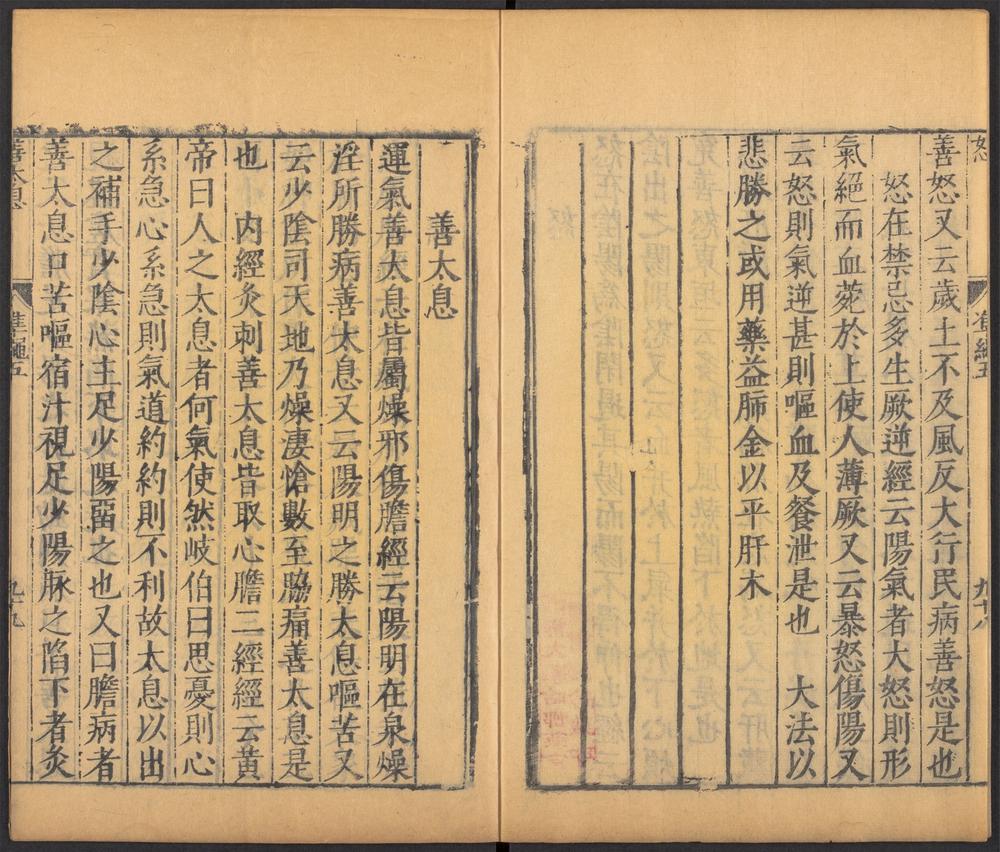 怒
准繩五
九十八
善怒又云歲土不及風反大行民病善怒是也
怒在禁忌多生厥逆經云陽氣者大怒則形
氣絕而血菀於上使人薄厥又云暴怒傷陽又
云怒則氣逆甚則嘔血及餐泄是也　大法以
悲勝之或用藥益肺金以平肝木
善太息
運氣善太息皆屬燥邪傷膽經云陽明在泉燥
淫所勝病善太息又云陽明之勝太息嘔苦又
云少陰司天地乃燥淒愴數至脇痛善太息是
也　內經灸刺善太息皆取心膽二經經云黃
帝曰人之太息者何氣使然岐伯曰思憂則心
系急心系急則氣道約約則不利故太息以出
之補手少陰心主足少陽畱之也又曰膽病者
善太息口苦嘔宿汁視足少陽脉之陷下者灸
善太息
準繩五
九十九